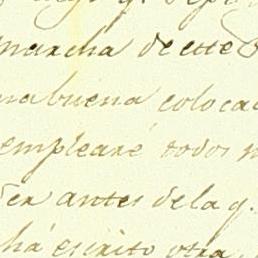 marcha de este
na buena coloca
emplearé todos
der antes de la q.
há escrito otra